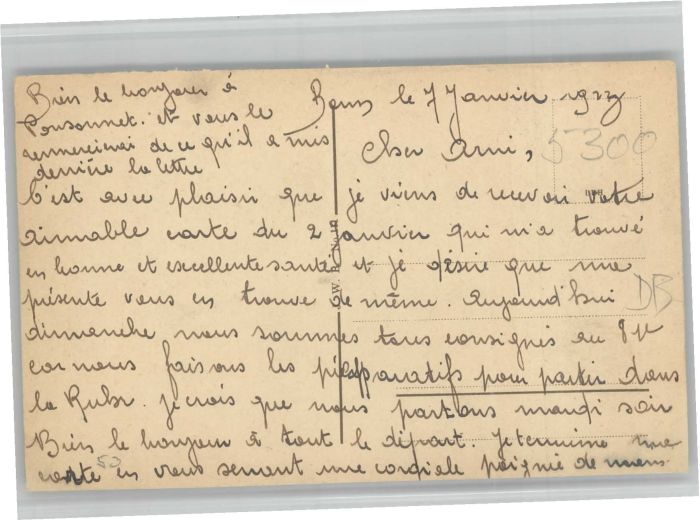 Bien le bonjour à
Ponsonnet. et vous le
remercierai de ce qu'il a mis
derrière la lettre
Bonn le 7 Janvier 1923
Cher Ami,
5300
C'est avec plaisir que je viens de recevoir votre
aimable carte du 2 Janvier qui m'a trouvé
en bonne et excellente santé et je désire que ma
présente vous en trouve de même. Aujourd'hui
DB
dimanche nous sommes tous consignés au
car nous faisons les préparatifs pour partir dans
la Ruhr. je crois que nous partons mardi soir
Bien le bonjour à tout le départ. Je termine ma
carte en vous serrant une cordiale poignée de mains
50